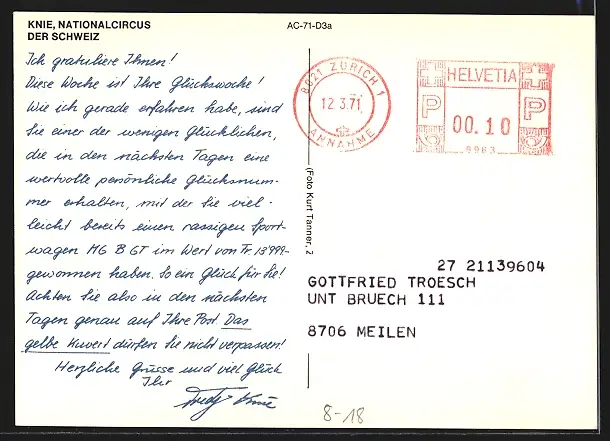 KNIE, NATIONALCIRCUS
DER SCHWEIZ
AC-71-D3a
Ich gratuliere Ihnen!
Diese Woche ist Ihre Glückswoche!
Wie ich gerade erfahren habe, sind
Sie einer der wenigen Glücklichen,
die in den nächsten Tagen eine
wertvolle persönliche Glücksnum-
mer erhalten, mit der Sie viel-
leicht bereits einen rassigen Sport-
wagen MG B GT im Wert von Fr. 13'999.-
gewonnen haben. So ein Glück für Sie!
Achten Sie also in den nächsten
Tagen genau auf Ihre Post. Das
gelbe Kuvert dürfen Sie nicht verpassen!
Herzliche Grüsse und viel Glück
Ihr
Fredy Knie
8021 ZÜRICH 1
12.3.71
ANNAHME
HELVETIA
P
P
00.10
9963
(Foto Kurt Tanner, Z
27 21139604
GOTTFRIED TROESCH
UNT BRUECH 111
8706 MEILEN
8-18